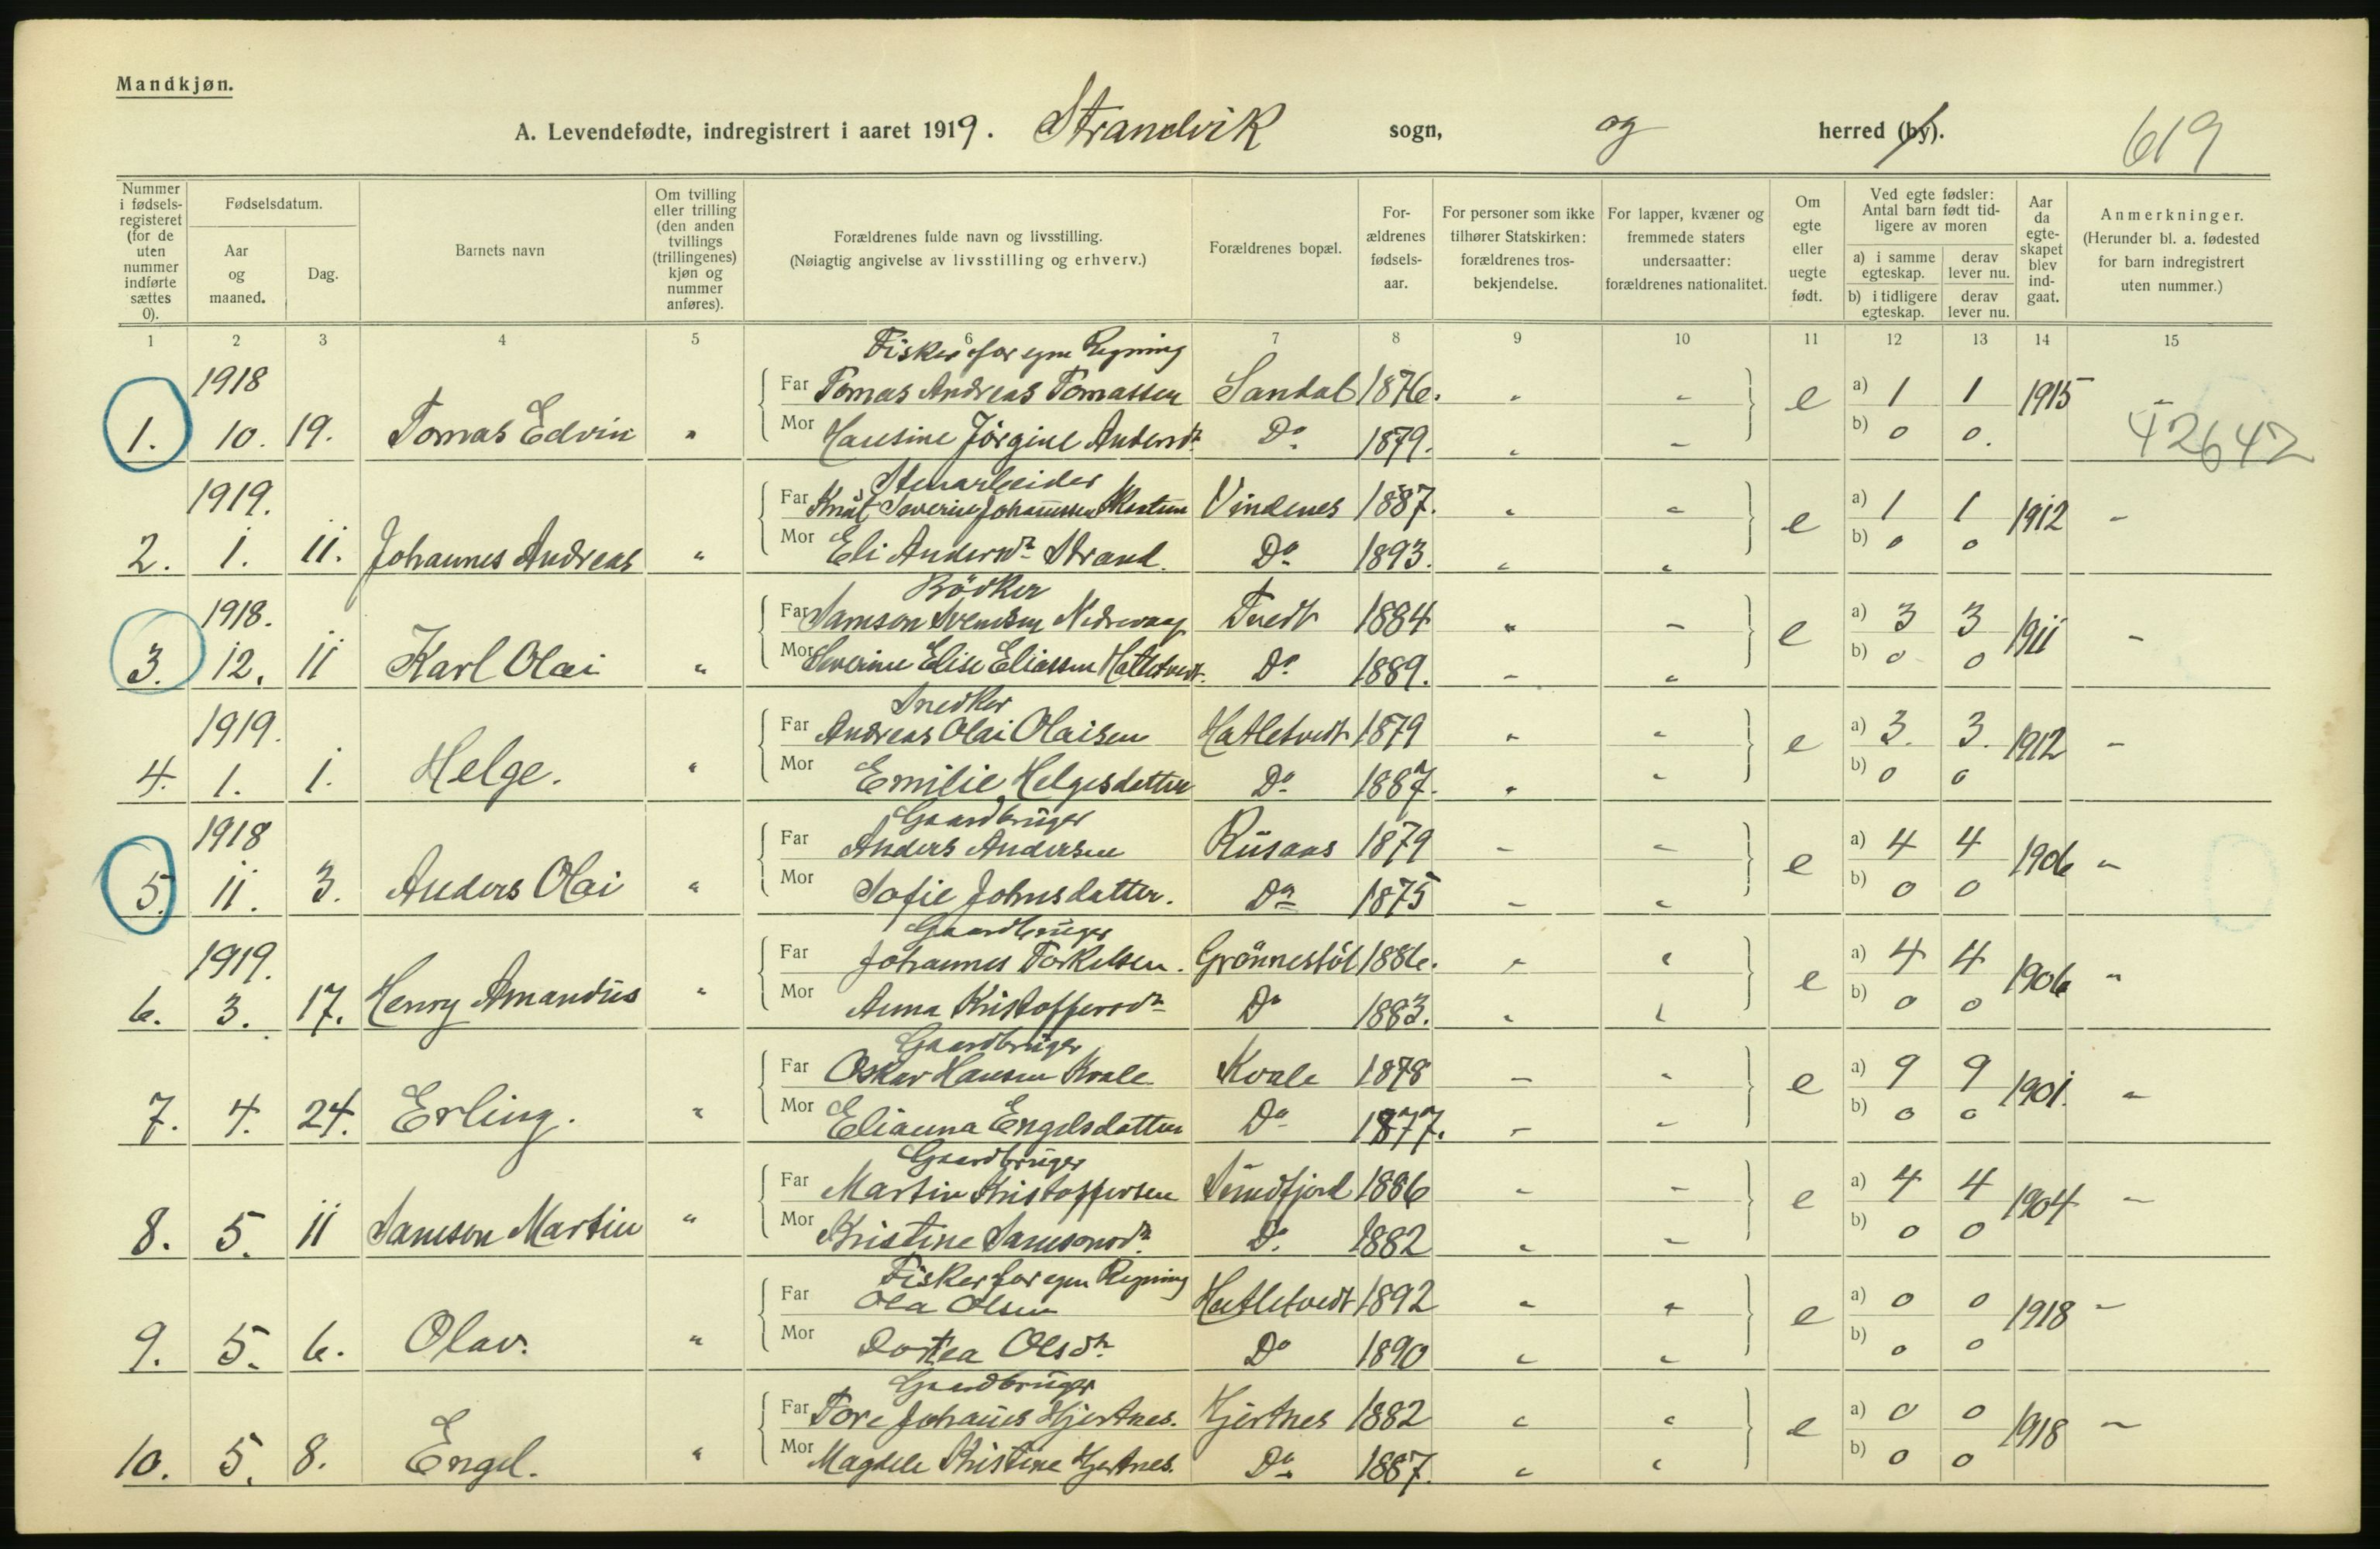 Mandkjøn.
A. Levendefødte, indregistrert i aaret 1919. Strandvik sogn, og herred (by). 619
Nummer i fødselsregisteret (for de uten nummer indførte sættes 0).
Fødselsdatum.
Aar og maaned.
Dag.
Barnets navn
Om tvilling eller trilling (den anden tvillings (trillingenes) kjøn og nummer anføres).
Forældrenes fulde navn og livsstilling.
(Nøiagtig angivelse av livsstilling og erhverv.)
Forældrenes bopæl.
Forældrenes fødselsaar.
For personer som ikke tilhører Statskirken: forældrenes trosbekjendelse.
For lapper, kvæner og fremmede staters undersaatter: forældrenes nationalitet.
Om egte eller uegte født.
Ved egte fødsler: Antal barn født tidligere av moren
a) i samme egteskap.
derav lever nu.
b) i tidligere egteskap.
derav lever nu.
Aar da egteskapet blev indgaat.
Anmerkninger.
(Herunder bl. a. fødested for barn indregistrert uten nummer.)
1 2 3 4 5 6 7 8 9 10 11 12 13 14 15
Fisker for egen Regning
1918 Far Tomas Andreas Tomassen Sandal 1876. " " e a) 1 1 1915 "
1. 10. 19. Tomas Edvin " Mor Hansine Jørgine Andersdr. Do 1879. " " b) 0 0. 42642
Stenarbeider
1919. Far Knut Severin Johannessen Vindenes 1887. " " e a) 1 1 1912 "
2. 1. 11. Johannes Andreas " Mor Eli Andersdr. Strand. Do 1893. " " b) 0 0
Bödker
1918. Far Samson Svendsen Nedrevaag Tvedt 1884 " " e a) 3 3 1911 "
3. 12. 11 Karl Olai " Mor Severine Elise Eliassen Hatletvedt. Do 1889. " " b) 0 0
Snedker
1919. Far Andreas Olai Olaisen Hatletvedt 1879 " " e a) 3. 3. 1912 "
4. 1. 1. Helge. " Mor Emilie Helgesdatter Do 1887. " " b) 0 0
Gaardbruger
1918 Far Anders Andersen Rusaas 1879 " " e a) 4 4 1906 "
5. 11. 3. Anders Olai " Mor Sofie Johnsdatter. Do 1875 " " b) 0 0
Gaardbruger
1919. Far Johannes Torkelsen. Grönnestöl 1886. " " e a) 4 4 1906 "
6. 3. 17. Henry Amandus " Mor Anna Kristoffersdr Do 1883. " " b) 0 0
Gaardbruger
Far Oskar Hansen Kvale Kvale 1878 " " e a) 9 9 1901. "
7. 4. 24. Erling. " Mor Elianna Engelsdatter Do 1877. " " b) 0 0
Gaardbruger
Far Martin Kristoffersen Sundfjord 1886 " " e a) 4 4 1904 "
8. 5. 11 Samson Martin " Mor Kristine Samsonsdr. Do. 1882 " " b) 0 0
Fisker for egen Regning
Far Ola Olsen Hatletvedt 1892 " " e a) 0 0 1918 "
9. 5. 6. Olav. " Mor Dortea Olsdr. Do 1890 " " b) 0 0
Gaardbruger
Far Tore Johannes Hjertnes. Hjertnes 1882 " " e a) 0 0 1918 "
10. 5. 8. Engel. " Mor Magdele Kristine Hjertnes. Do 1887. " " b) 0 0